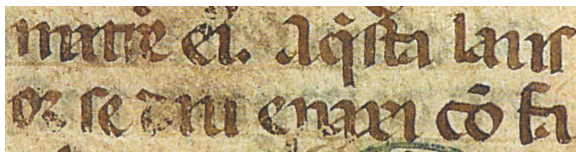 matrē ei. Aq̄sta laus
or se diu enaxi cō fa